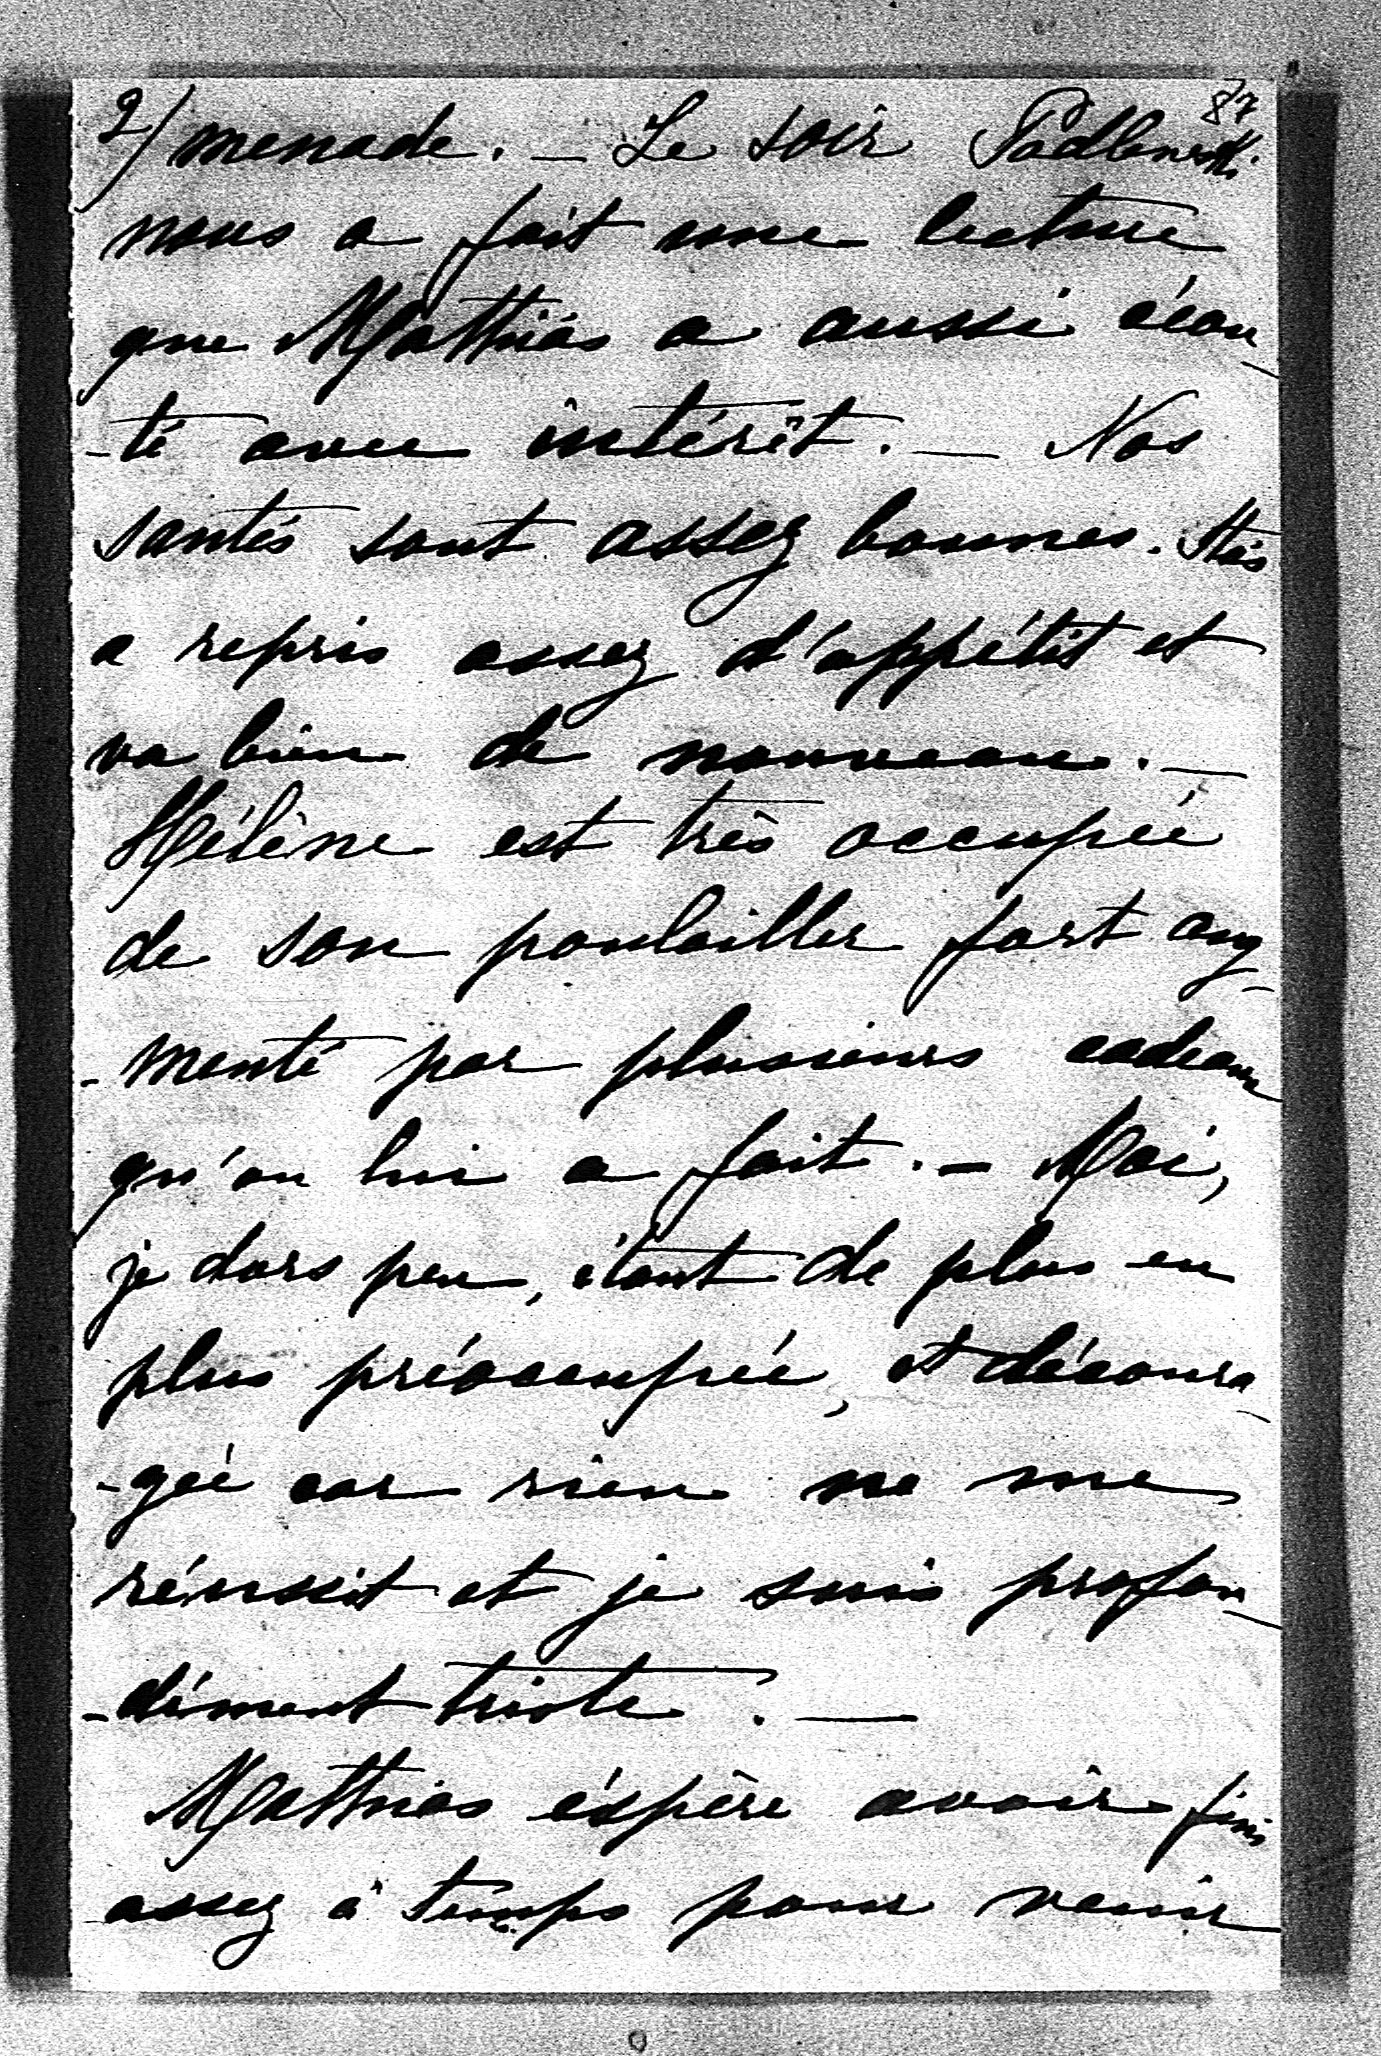 87
2/ menade. — Le soir Podlewski
nous a fait une lecture
que Matthias a aussi écou
-té avec intérêt. — Nos
santés sont assez bonnes. Stas
a repris assez d'appétit et
va bien de nouveau. —
Hélène est très occupée
de son poulailler fort aug
-menté par plusieurs cadeaux
qu'on lui a fait. — Moi,
je dors peu, étant de plus en
plus préoccupée, et découra
-gée car rien ne me
réussit et je suis profon
-dément triste. —
Matthias éspère avoir fini
assez à temps pour venir